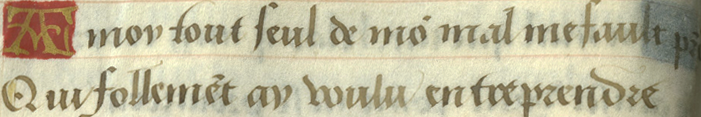 A moy tout seul de mõ mal me fault
Qui follemẽt ay voulu entreprendre